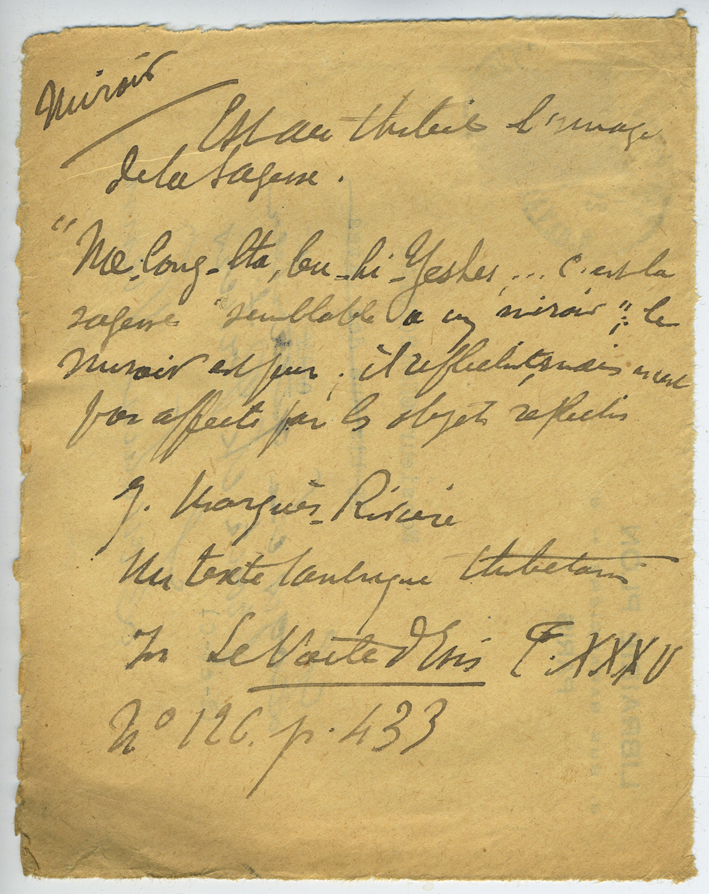 Miroir
Est au Thibet l'image
de la sagesse.
"Me-long-lta, bu-hi-Yeshes,... c'est la
sagesse "semblable a un miroir"; le
miroir est pur; il reflechit, mais n'est
pas affecté par les objets reflechis
J. Marquès-Rivière
Un texte tantrique thibetain
In Le Voile d'Isis T. XXXV
No 126. p. 433
LIBRAI PLON